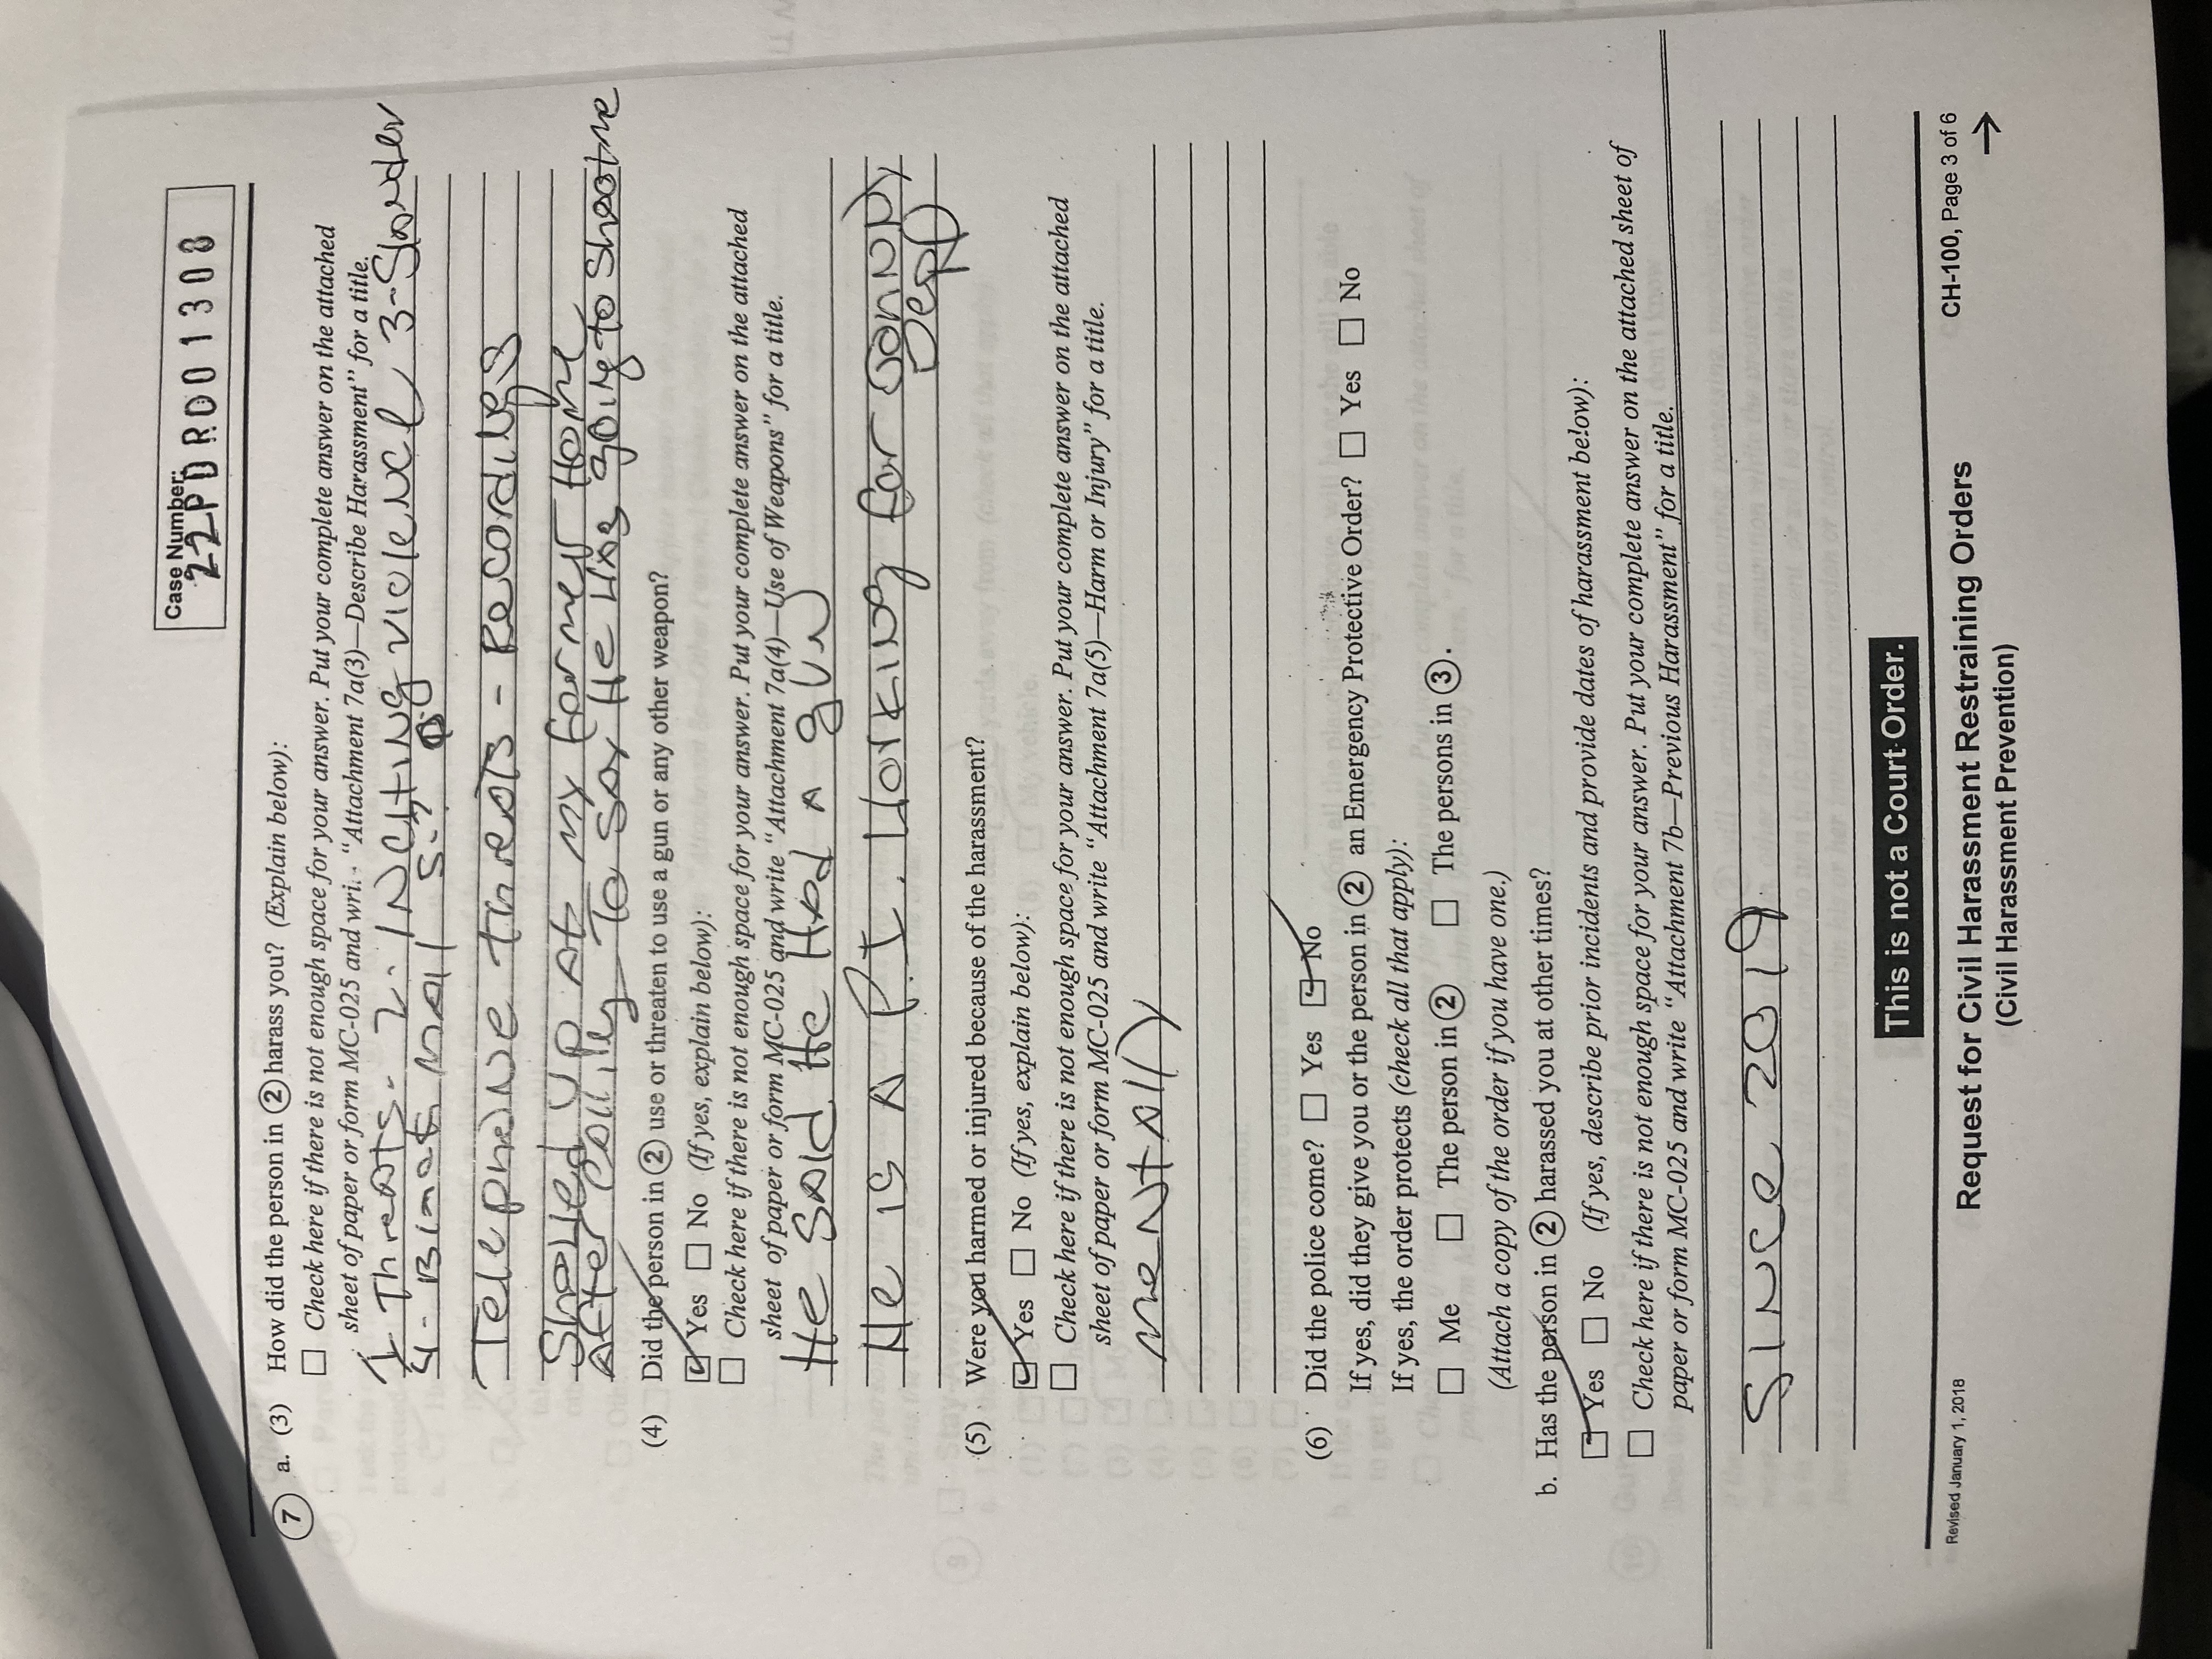 Case Number:
22PDRO01308
7 a. (3) How did the person in 2 harass you? (Explain below):
☐ Check here if there is not enough space for your answer. Put your complete answer on the attached
sheet of paper or form MC-025 and wri. "Attachment 7a(3)—Describe Harassment" for a title.
1 Threats - 2 - INCitiNg violeNce 3-Slander
4 - Black Mail 5-?
TelephoNe threats - Recordings
Showed Up At my former Home
After Calling To Say He was going to Shoot me
(4) Did the person in 2 use or threaten to use a gun or any other weapon?
☑ Yes ☐ No (If yes, explain below):
☐ Check here if there is not enough space for your answer. Put your complete answer on the attached
sheet of paper or form MC-025 and write "Attachment 7a(4)—Use of Weapons" for a title.
He Said He Had A guN
He is A P.I. WorKiNg for
Depp
(5) Were you harmed or injured because of the harassment?
☑ Yes ☐ No (If yes, explain below):
☐ Check here if there is not enough space for your answer. Put your complete answer on the attached
sheet of paper or form MC-025 and write "Attachment 7a(5)—Harm or Injury" for a title.
meNtAlly
(6) Did the police come? ☐ Yes ☑ No
If yes, did they give you or the person in 2 an Emergency Protective Order? ☐ Yes ☐ No
If yes, the order protects (check all that apply):
☐ Me ☐ The person in 2 ☐ The persons in 3.
(Attach a copy of the order if you have one.)
b. Has the person in 2 harassed you at other times?
☑ Yes ☐ No (If yes, describe prior incidents and provide dates of harassment below):
☐ Check here if there is not enough space for your answer. Put your complete answer on the attached sheet of
paper or form MC-025 and write "Attachment 7b—Previous Harassment" for a title.
SINce 2019
This is not a Court Order.
Revised January 1, 2018
Request for Civil Harassment Restraining Orders
(Civil Harassment Prevention)
CH-100, Page 3 of 6
→